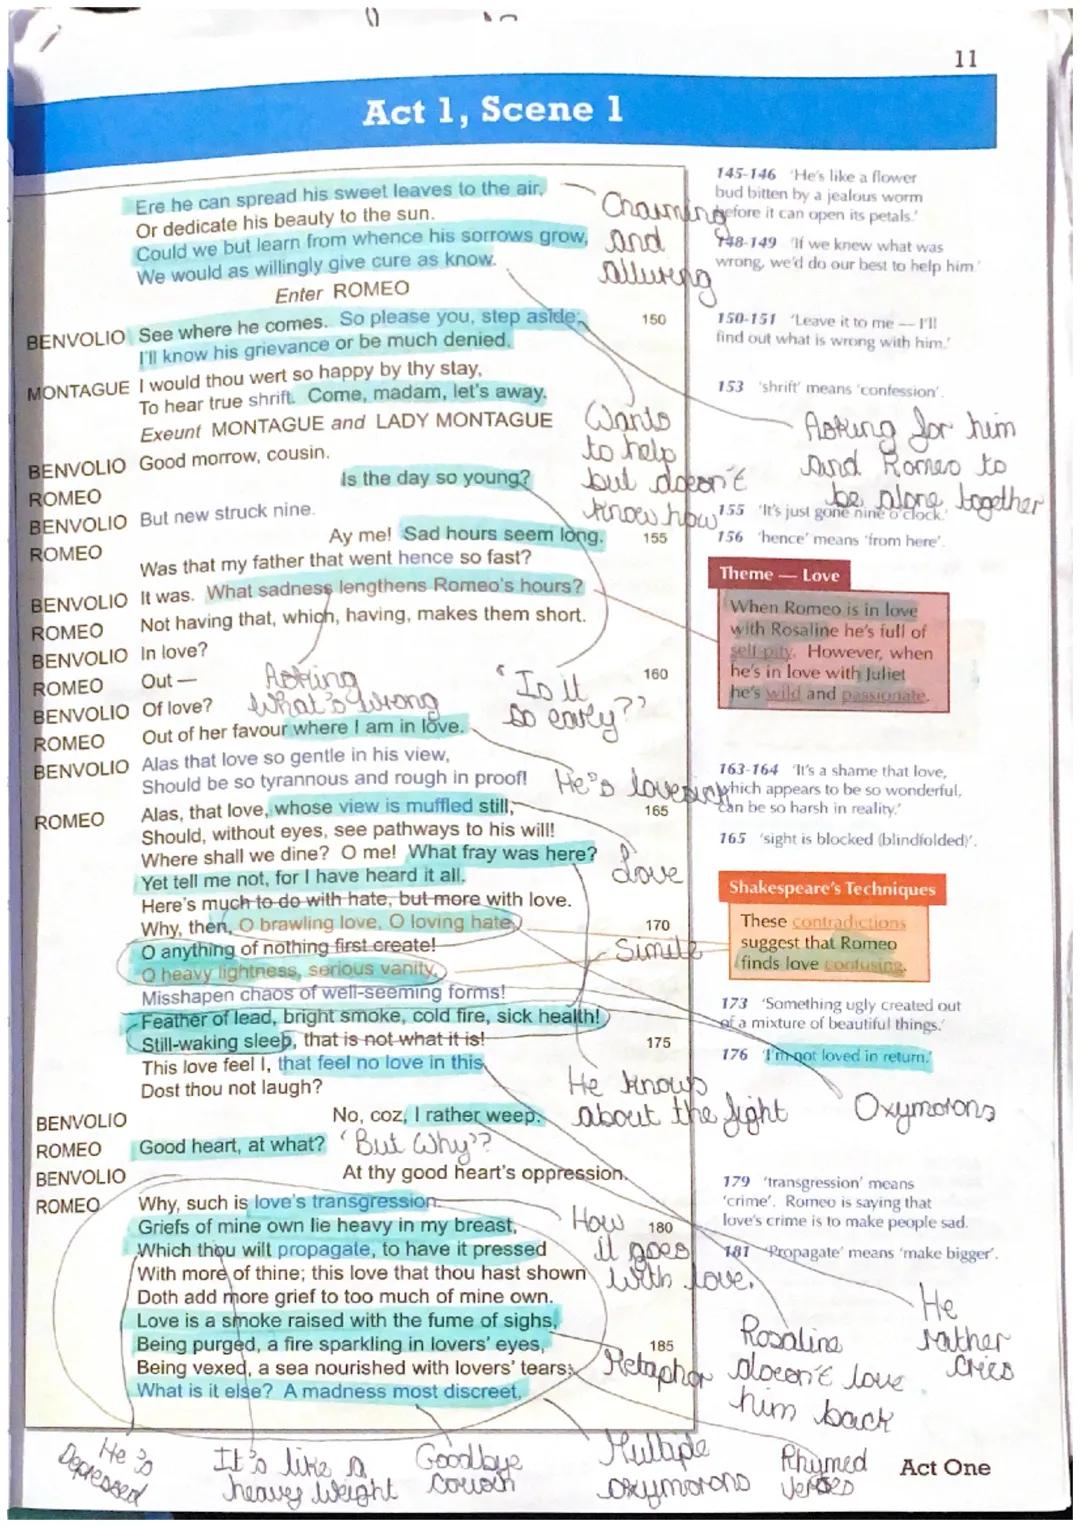 11
Act 1, Scene 1
Ere he can spread his sweet leaves to the air,
Or dedicate his beauty to the sun.
Could we but learn from whence his sorrows grow,
We would as willingly give cure as know.
Enter ROMEO
BENVOLIO See where he comes. So please you, step aside; 150
I'll know his grievance or be much denied.
MONTAGUE I would thou wert so happy by thy stay,
To hear true shrift. Come, madam, let's away.
Exeunt MONTAGUE and LADY MONTAGUE
BENVOLIO Good morrow, cousin.
ROMEO Is the day so young?
BENVOLIO But new struck nine.
ROMEO Ay me! Sad hours seem long. 155
Was that my father that went hence so fast?
BENVOLIO It was. What sadness lengthens Romeo's hours?
ROMEO Not having that, which, having, makes them short.
BENVOLIO In love?
ROMEO Out — 160
BENVOLIO Of love?
ROMEO Out of her favour where I am in love.
BENVOLIO Alas that love so gentle in his view,
Should be so tyrannous and rough in proof!
ROMEO Alas, that love, whose view is muffled still, 165
Should, without eyes, see pathways to his will!
Where shall we dine? O me! What fray was here?
Yet tell me not, for I have heard it all.
Here's much to do with hate, but more with love.
Why, then, O brawling love, O loving hate, 170
O anything of nothing first create!
O heavy lightness, serious vanity,
Misshapen chaos of well-seeming forms!
Feather of lead, bright smoke, cold fire, sick health!
Still-waking sleep, that is not what it is! 175
This love feel I, that feel no love in this.
Dost thou not laugh?
BENVOLIO No, coz, I rather weep.
ROMEO Good heart, at what? 'But Why'?
BENVOLIO At thy good heart's oppression.
ROMEO Why, such is love's transgression.
Griefs of mine own lie heavy in my breast, 180
Which thou wilt propagate, to have it pressed
With more of thine; this love that thou hast shown
Doth add more grief to too much of mine own.
Love is a smoke raised with the fume of sighs,
Being purged, a fire sparkling in lovers' eyes, 185
Being vexed, a sea nourished with lovers' tears;
What is it else? A madness most discreet,
Charming
and
alluring
Wants
to help
but doesn't
know how
Asking
what's wrong
"Is it
so early?"
He's lovesick
Love
Simile
He knows
about the fight
How
it goes
with love.
Metaphor
145-146 'He's like a flower
bud bitten by a jealous worm
before it can open its petals.'
148-149 'If we knew what was
wrong, we'd do our best to help him.'
150-151 'Leave it to me — I'll
find out what is wrong with him.'
153 'shrift' means 'confession'.
Asking for him
and Romeo to
be alone together
155 'It's just gone nine o'clock.'
156 'hence' means 'from here'.
Theme — Love
When Romeo is in love
with Rosaline he's full of
self-pity. However, when
he's in love with Juliet
he's wild and passionate.
163-164 'It's a shame that love,
which appears to be so wonderful,
can be so harsh in reality.'
165 'sight is blocked (blindfolded)'.
Shakespeare's Techniques
These contradictions
suggest that Romeo
finds love confusing.
173 'Something ugly created out
of a mixture of beautiful things.'
176 'I'm not loved in return.'
Oxymorons
179 'transgression' means
'crime'. Romeo is saying that
love's crime is to make people sad.
181 'Propagate' means 'make bigger'.
He
rather
cries
Rosaline
doesn't love
him back
He's
Depressed
It's like a
heavy weight
Goodbye
cousin
Multiple
oxymorons
Rhymed
verses
Act One